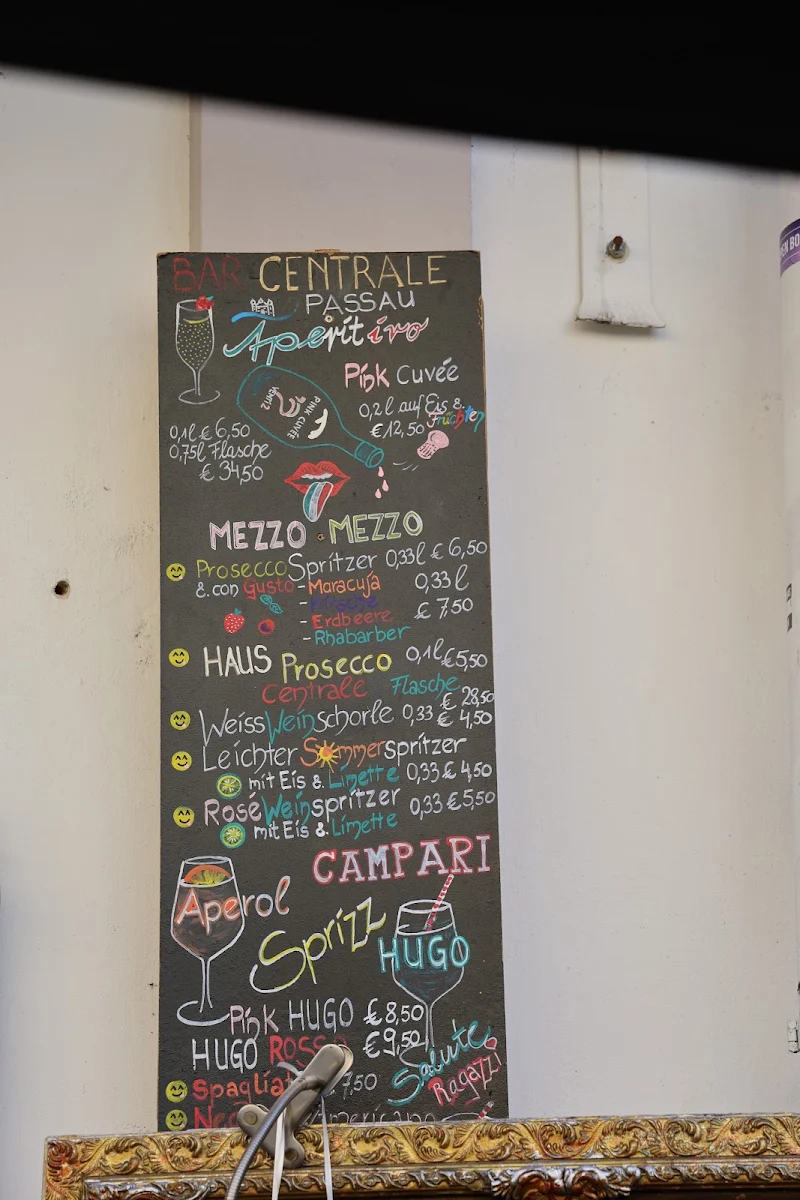 BAR CENTRALE
PASSAU
Aperitivo
Pink Cuvée
0,2 l auf Eis &
Früchten
€ 12,50
PINK CUVÉE
0,1 l € 6,50
0,75 l Flasche
€ 34,50
MEZZO · MEZZO
Prosecco Spritzer 0,33 l € 6,50
& con Gusto - Maracuja 0,33 l
- Kirsche € 7,50
- Erdbeere
- Rhabarber
HAUS Prosecco 0,1 l € 5,50
Centrale Flasche € 28,50
Weiss Weinschorle 0,33 € 4,50
Leichter Sommerspritzer
mit Eis & Limette 0,33 € 4,50
Rosé Weinspritzer 0,33 € 5,50
mit Eis & Limette
CAMPARI
Aperol
Sprizz
HUGO
Pink HUGO € 8,50
HUGO ROSSO € 9,50
Salute
Ragazzi
7,50